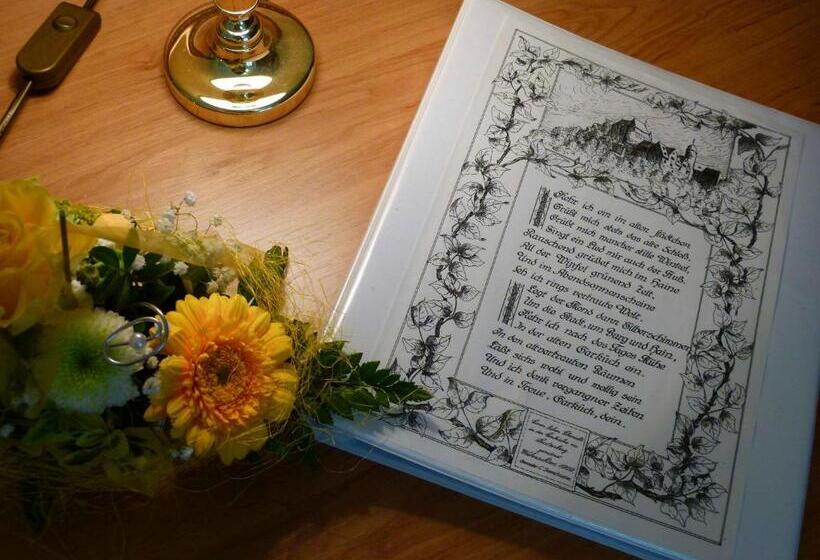 Kehr ich ein im alten Städtchen
Grüßt mich stets das alte Schloß,
Grüßt mich mancher stille Winkel,
Singt ein Lied mir auch der Fluß.
Rauschend grüßet mich im Haine
All der Wipfel grünend Zelt,
Und im Abendsonnenscheine
Seh ich rings vertraute Welt.
Legt der Mond dann Silberschimmer
Um die Stadt, um Burg und Hain,
Kehr ich nach des Tages Mühe
In der alten Garküch ein.
In den altvertrauten Räumen
Läßt sichs wohl und mollig sein
Und ich denk vergangner Zeiten
Und in Treue, Garküch, dein.